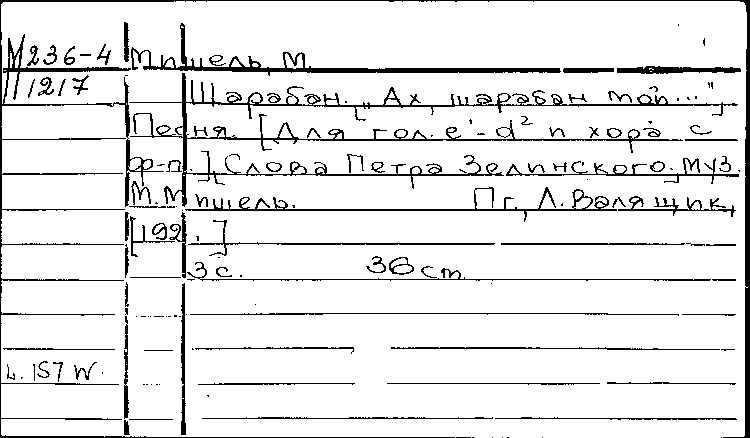 М236-4 Мишель, М.
1217 Шарабан. ["Ах, шарабан мой..."]
Песня. [Для гол. e'-d² и хора с
ф-п.], Слова Петра Зелинского, муз.
М. Мишель. Пг., Л. Валящик,
[192.]
3 с. 36 cm
L. 157 W.